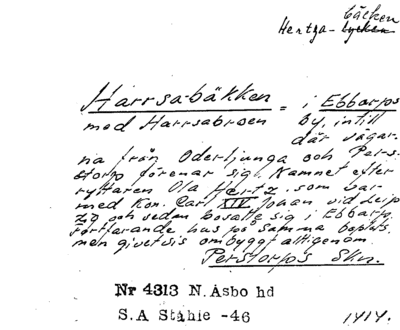 bäcken
Hertza-lycken
Harrsa-bäkken = i Ebbarps
med Harrsabroen by, intill
där vägar-
na från Oderljunga och Pers-
torp förenar sig. Namnet efter
ryttaren Ola Hertz som var
med Kon. Carl XIV Johan vid Leip
zig och sedan bosatte sig i Ebbarp.
Fortfarande hus på samma boplats
men givetvis ombyggt alltigenom.
Perstorps Skn.
Nr 4313 N. Åsbo hd
S.A Ståhle -46
1414.